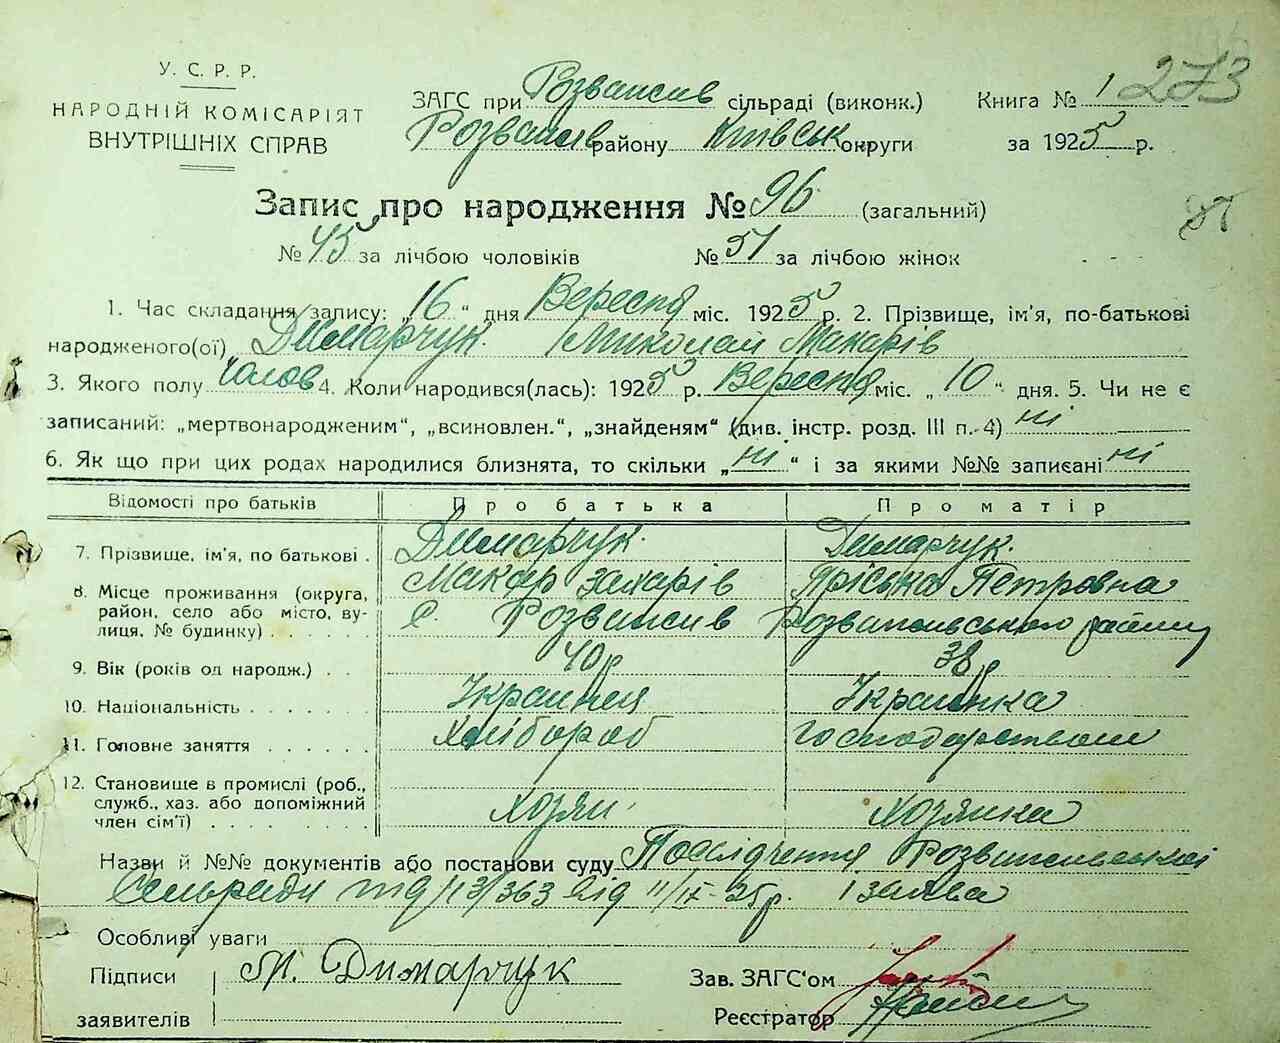 У. С. Р. Р.
НАРОДНІЙ КОМІСАРІЯТ
ВНУТРІШНІХ СПРАВ
ЗАГС при Розважів сільраді (виконк.)
Розважів району Київськ округи
Книга № 1 273
за 1925 р.
Запис про народження № 96 (загальний)
№ 45 за лічбою чоловіків № 51 за лічбою жінок
1. Час складання запису: „16“ дня Вересня міс. 1925 р. 2. Прізвище, ім'я, по-батькові
народженого(ої) Димарчук Миколай Макарів
3. Якого полу чолов 4. Коли народився(лась): 1925 р. Вересня міс. „10“ дня. 5. Чи не є
записаний: „мертвонародженим“, „всиновлен.“, „знайденям“ (див. інстр. розд. III п. 4) ні
6. Як що при цих родах народилися близнята, то скільки „ні“ і за якими №№ записані ні
Відомості про батьків Про батька Про матір
7. Прізвище, ім'я, по батькові . Димарчук Димарчук
Макар Захарів Пріська Петровна
8. Місце проживання (округа,
район, село або місто, ву-
лиця, № будинку) . . . . . . С. Розважів Розважівського району
9. Вік (років од народж.) . . 40 р 38 р
10. Національність . . . . . Українец Українка
11. Головне заняття . . . . . . Хлібороб Господарством
12. Становище в промислі (роб.,
служб., хаз. або допоміжний
член сім'ї) . . . . . . . . хозяи Хозяика
Назви й №№ документів або постанови суду Посвідчення Розважівської
Сельради 13/363 від 11/IX-25 р. і заява
Особливі уваги
Підписи М. Димарчук
заявителів
Зав. ЗАГС'ом
Реєстратор